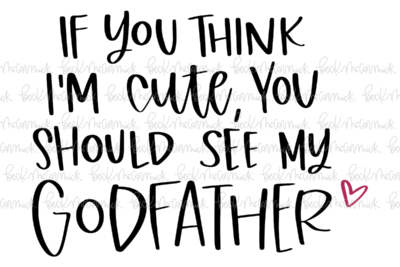 IF YOU THINK
I'M cute, YOU
SHOULD SEE MY
GODFATHER